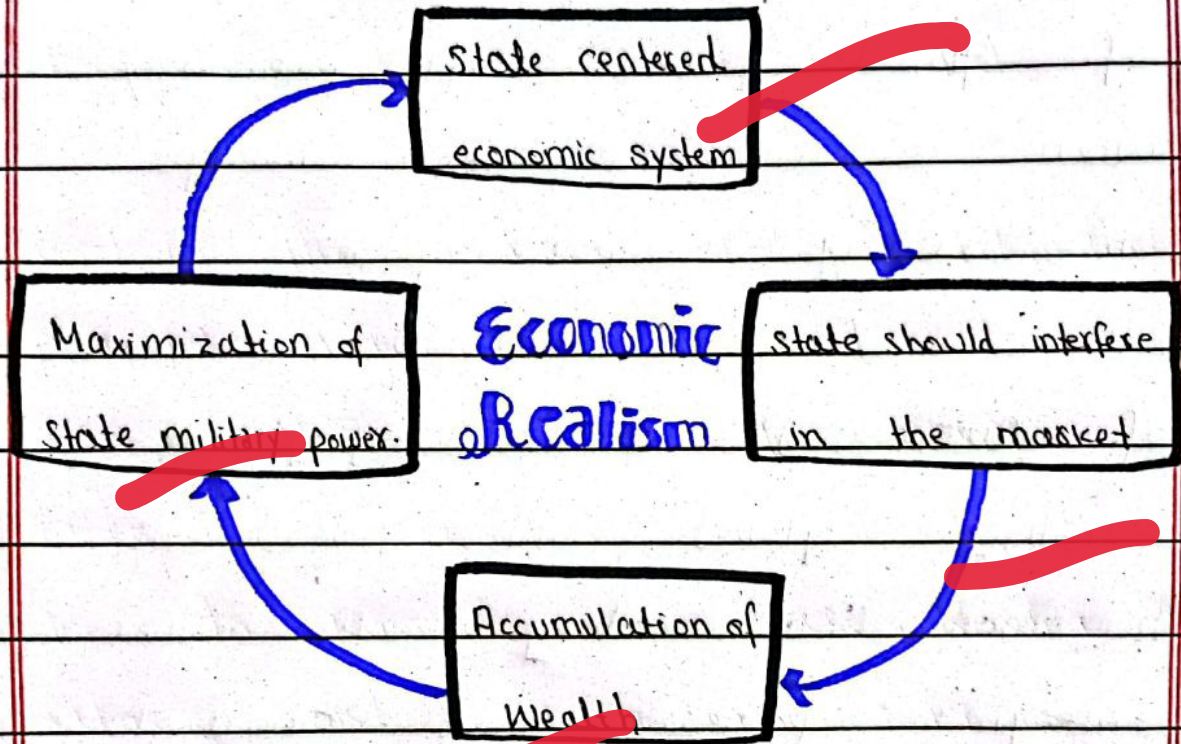 State centered
economic system
Maximization of
State military power.
Economic
Realism
state should interfere
in the market
Accumulation of
Wealth